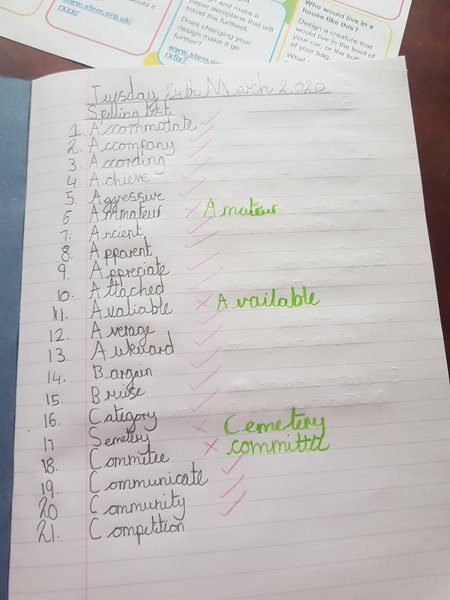 www.stem.org.uk/
rxxr
and make a
paper aeroplane that will
travel the furthest.
Does changing your
design make it go
further?
Who would live in a
house like this?
Design a creature that
would live in the boot of
your car, or the
of your bag.
Tuesday 24th March 2020
Spelling List
1. Accommodate
2. Accompany
3. According
4. Achieve
5. Aggressive
6 Ammateur Amateur
7. Ancient
8. Apparent
9. Appreciate
10. Attached
11. Avaliable Available
12. Average
13. Awkward
14. Bargain
15. Bruise
16. Category
17 Semetery Cemetery
18. Commitee
19. Communicate
20 Community
21. Competition